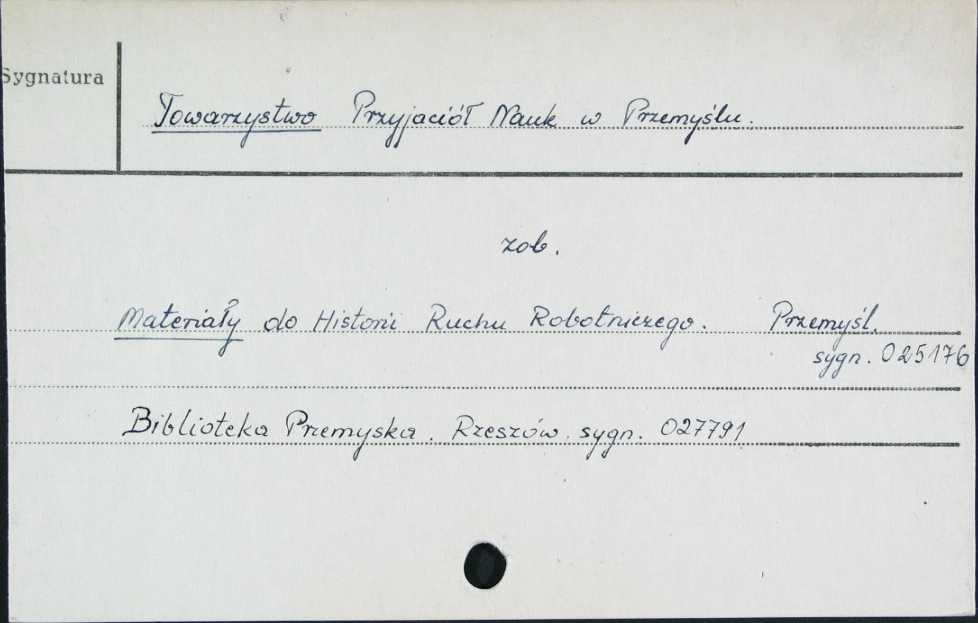 Sygnatura
Towarzystwo Przyjaciół Nauk w Przemyślu.
zob.
Materiały do Historii Ruchu Robotniczego. Przemyśl.
sygn. 025176
Biblioteka Przemyska. Rzeszów. sygn. 027791